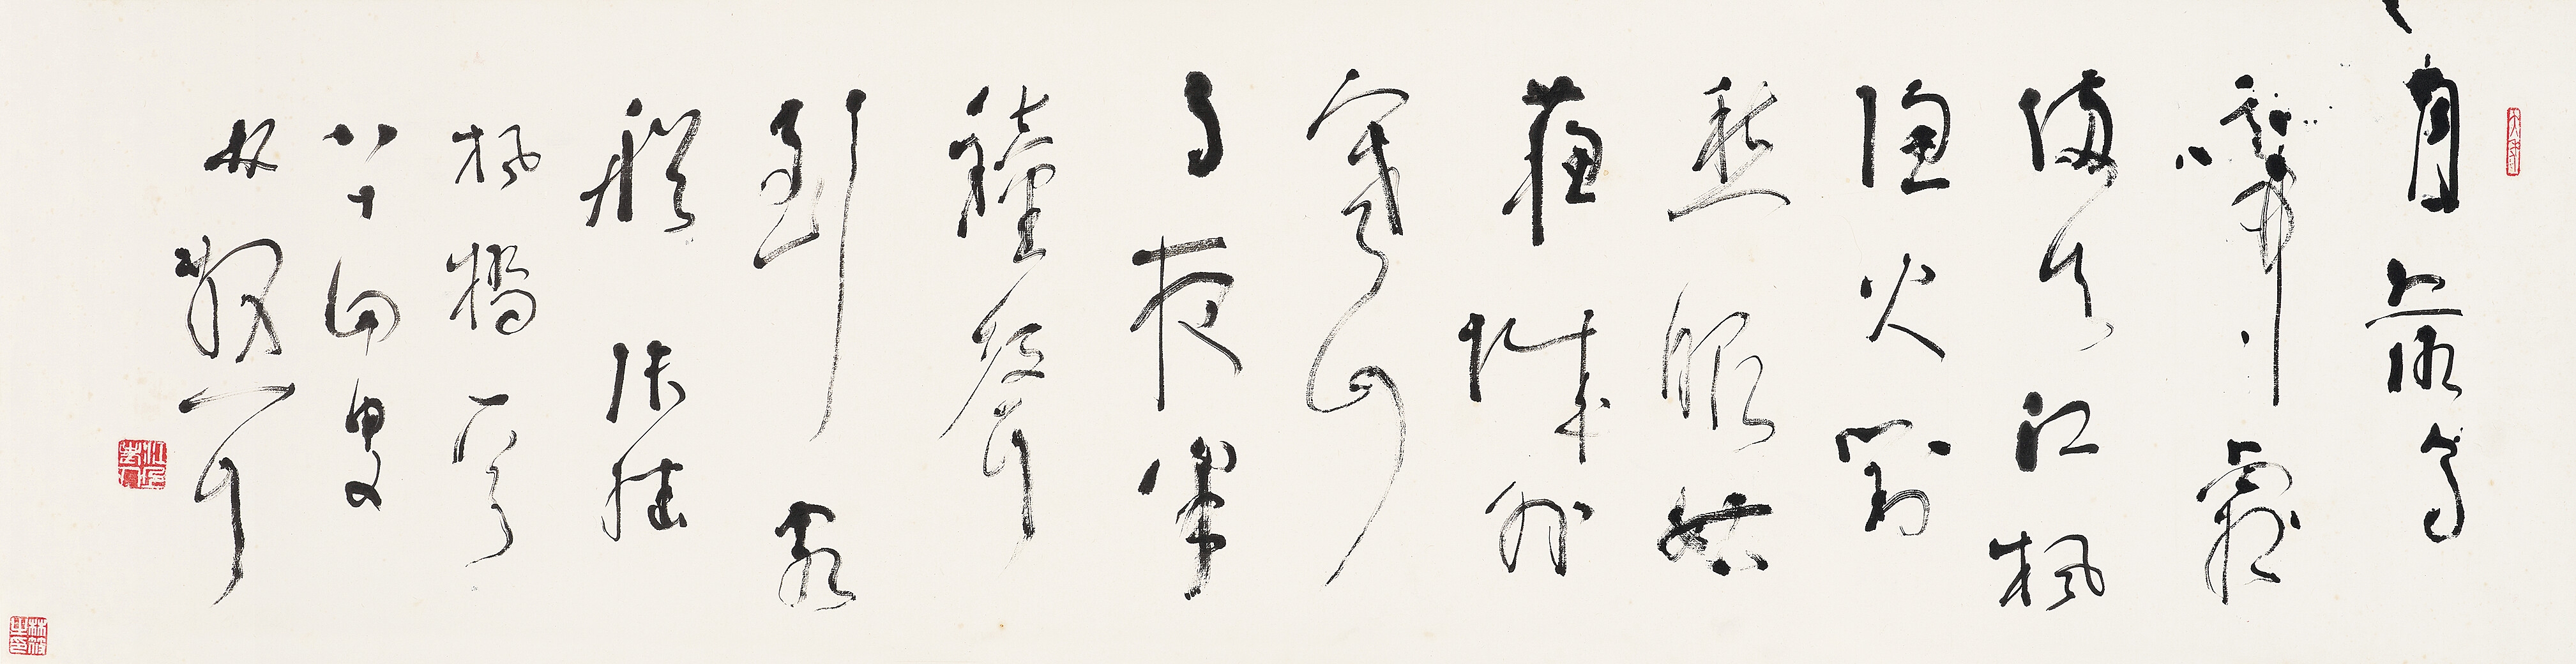 月落烏
啼霜
滿天江楓
漁火對
愁眠姑
蘇城外
寒山
寺夜半
鐘聲
到客
船 張繼
楓橋一首
八十四叟
林散耳